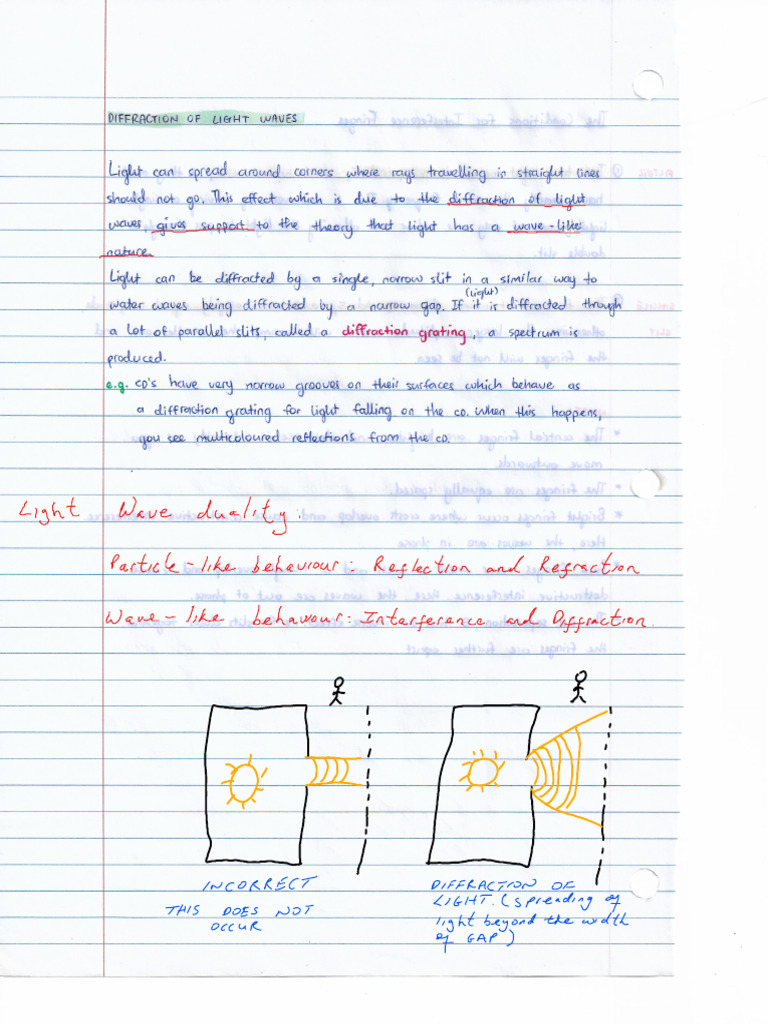 DIFFRACTION OF LIGHT WAVES
Light can spread around corners where rays travelling in straight lines
should not go. This effect which is due to the diffraction of light
waves, gives support to the theory that light has a wave-like
nature.
Light can be diffracted by a single, narrow slit in a similar way to
(light)
water waves being diffracted by a narrow gap. If it is diffracted through
a lot of parallel slits, called a diffraction grating, a spectrum is
produced.
e.g. CD's have very narrow grooves on their surfaces which behave as
a diffraction grating for light falling on the CD. When this happens,
you see multicoloured reflections from the CD.
Light Wave duality.
Particle-like behaviour: Reflection and Refraction
Wave-like behaviour: Interference and Diffraction.
INCORRECT
THIS DOES NOT
OCCUR
DIFFRACTION OF
LIGHT. (Spreading of
light beyond the width
of GAP)